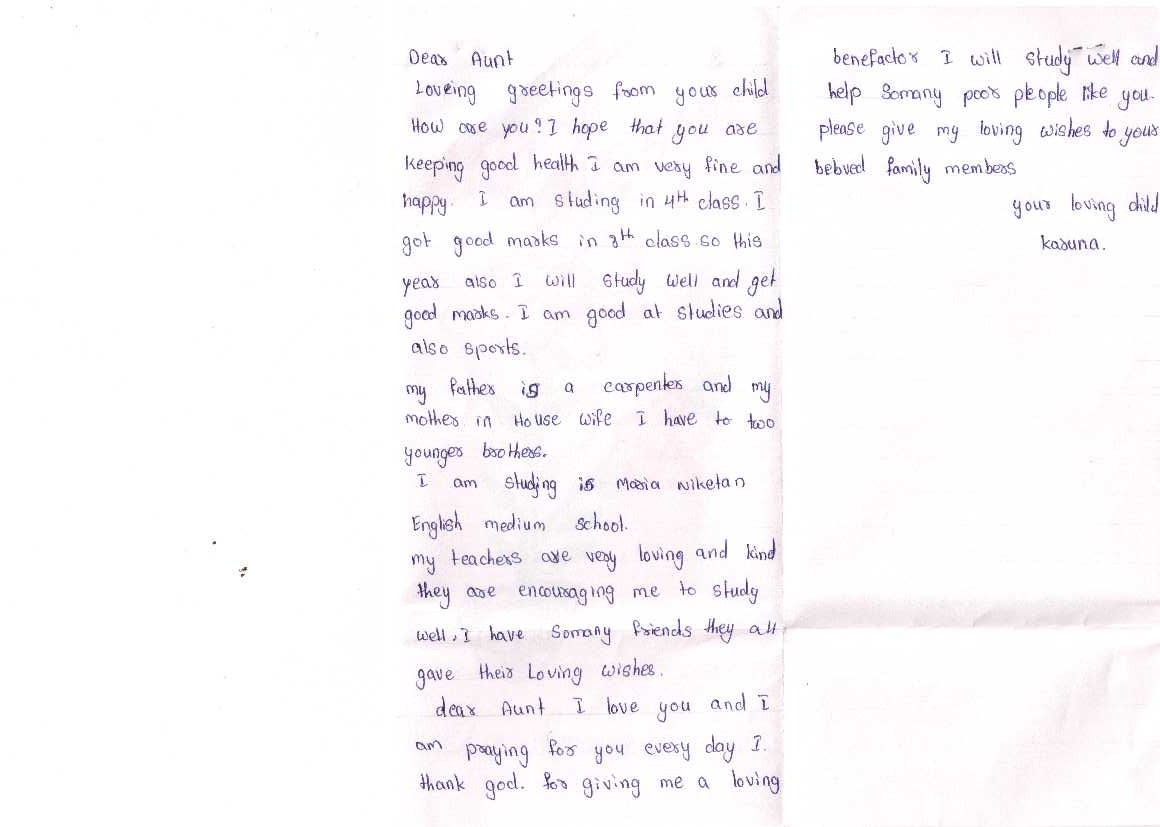 Dear Aunt
Loveing greetings from your child
How are you? I hope that you are
keeping good health I am very fine and
happy. I am studing in 4th class. I
got good marks in 3th class so this
year also I will study well and get
good marks. I am good at studies and
also sports.
my father is a carpenter and my
mother in House wife I have to two
younger brothers.
I am studing is Maria Niketan
English medium school.
my teachers are very loving and kind
they are encouraging me to study
well, I have Somany friends they all
gave their Loving wishes.
dear Aunt I love you and I
am praying for you every day I.
thank god. for giving me a loving
benefactor I will study well and
help Somany poor people like you.
please give my loving wishes to your
beloved family members
your loving child
karuna.